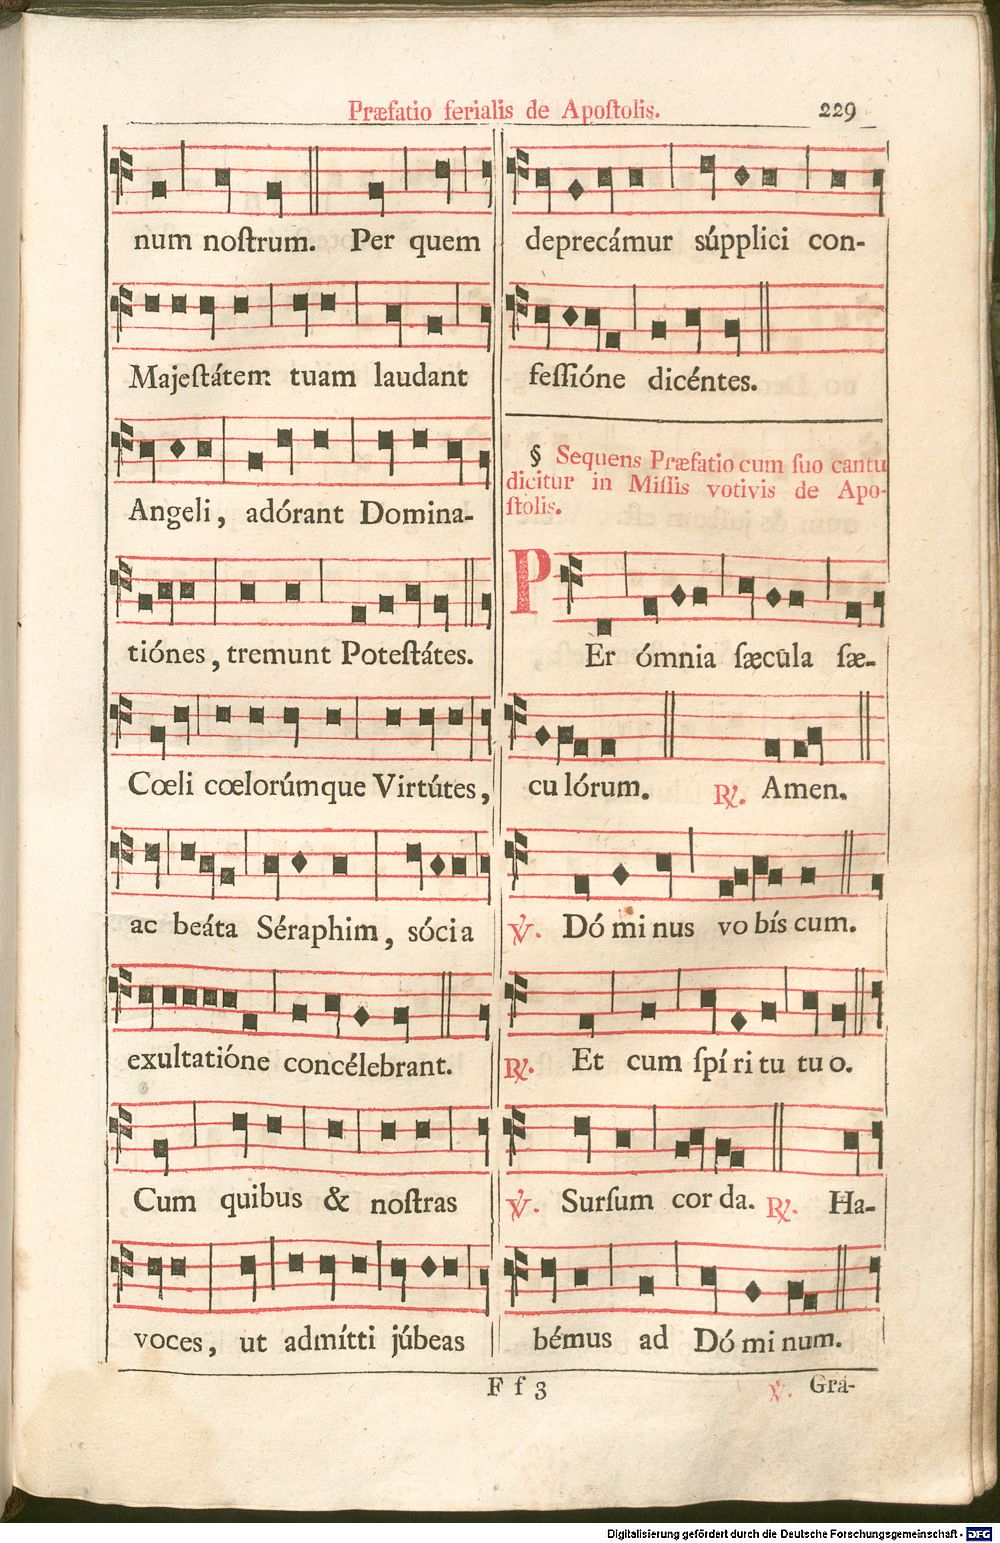 Præfatio ferialis de Apoſtolis. 229
num noſtrum. Per quem
Majeſtátem tuam laudant
Angeli, adórant Domina-
tiónes, tremunt Poteſtátes.
Cœli cœlorúmque Virtútes,
ac beáta Séraphim, sócia
exultatióne concélebrant.
Cum quibus & noſtras
voces, ut admítti júbeas
deprecámur súpplici con-
feſſióne dicéntes.
§ Sequens Præfatio cum ſuo cantu
dicitur in Miſſis votivis de Apo-
ſtolis.
PEr ómnia ſæcula ſæ-
cu lórum. ℟. Amen.
℣. Dó mi nus vo bís cum.
℟. Et cum ſpí ri tu tu o.
℣. Surſum cor da. ℟. Ha-
bémus ad Dó mi num.
F f 3 ℣. Grá-
Digitalisierung gefördert durch die Deutsche Forschungsgemeinschaft - DFG